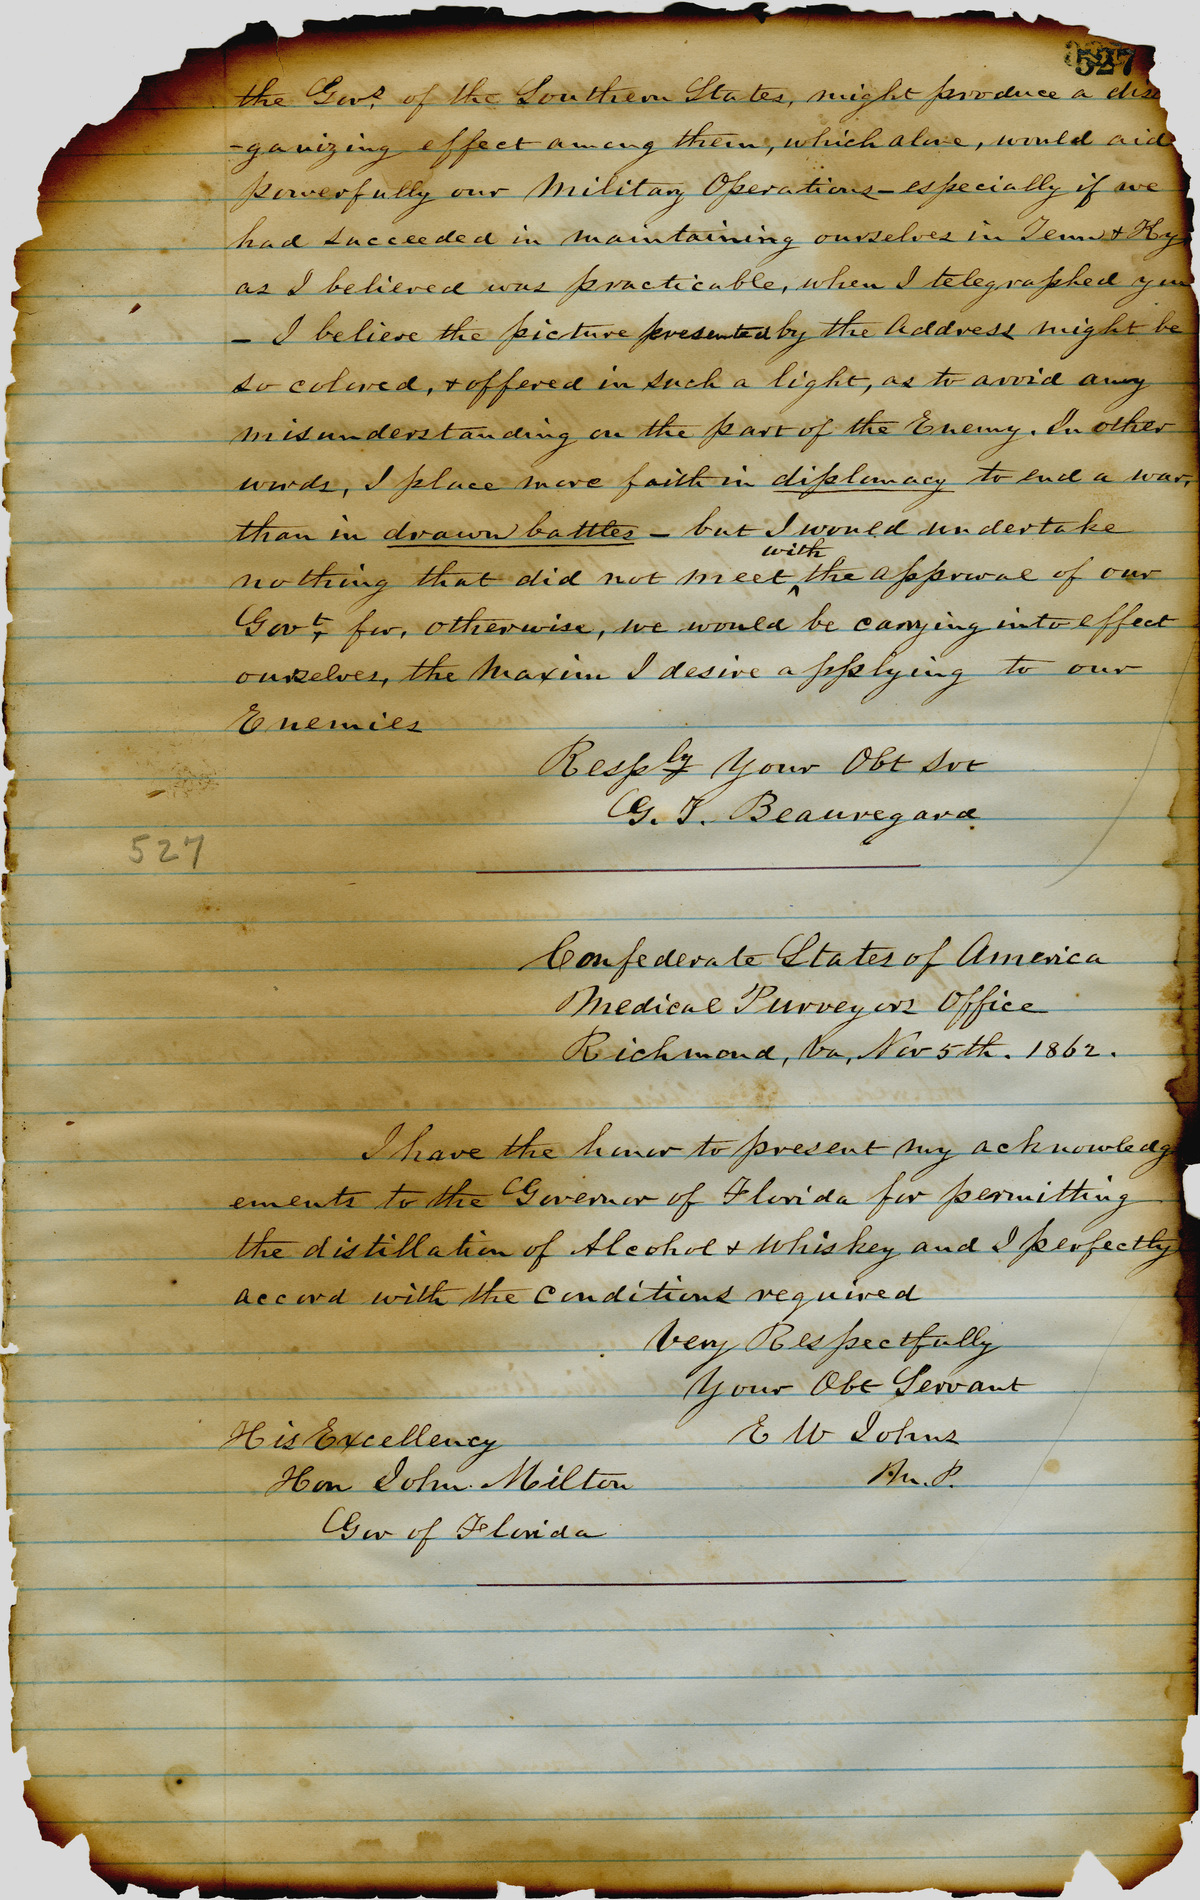 527
the Govs. of the Southern States, might produce a diso
-ganizing effect among them, which alone, would aid
powerfully our Military Operations - especially if we
had succeeded in maintaining ourselves in Tenn & Ky
as I believed was practicable, when I telegraphed you
- I believe the picture presented by the Address might be
so colored, & offered in such a light, as to avoid any
misunderstanding on the part of the Enemy. In other
words, I place more faith in diplomacy to end a war,
than in drawn battles - but I would undertake
nothing that did not meet with the approval of our
Govt, for, otherwise, we would be carrying into effect
ourselves, the Maxim I desire applying to our
Enemies
Resply Your Obt Svt
G. T. Beauregard
527
Confederate States of America
Medical Purveyors Office
Richmond, Va, Nov 5th. 1862.
I have the honor to present my acknowledg
ements to the Governor of Florida for permitting
the distillation of Alcohol & Whiskey and I perfectly
accord with the conditions required
Very Respectfully
Your Obt Servant
E W Johns
M. P.
His Excellency
Hon John Milton
Gov of Florida